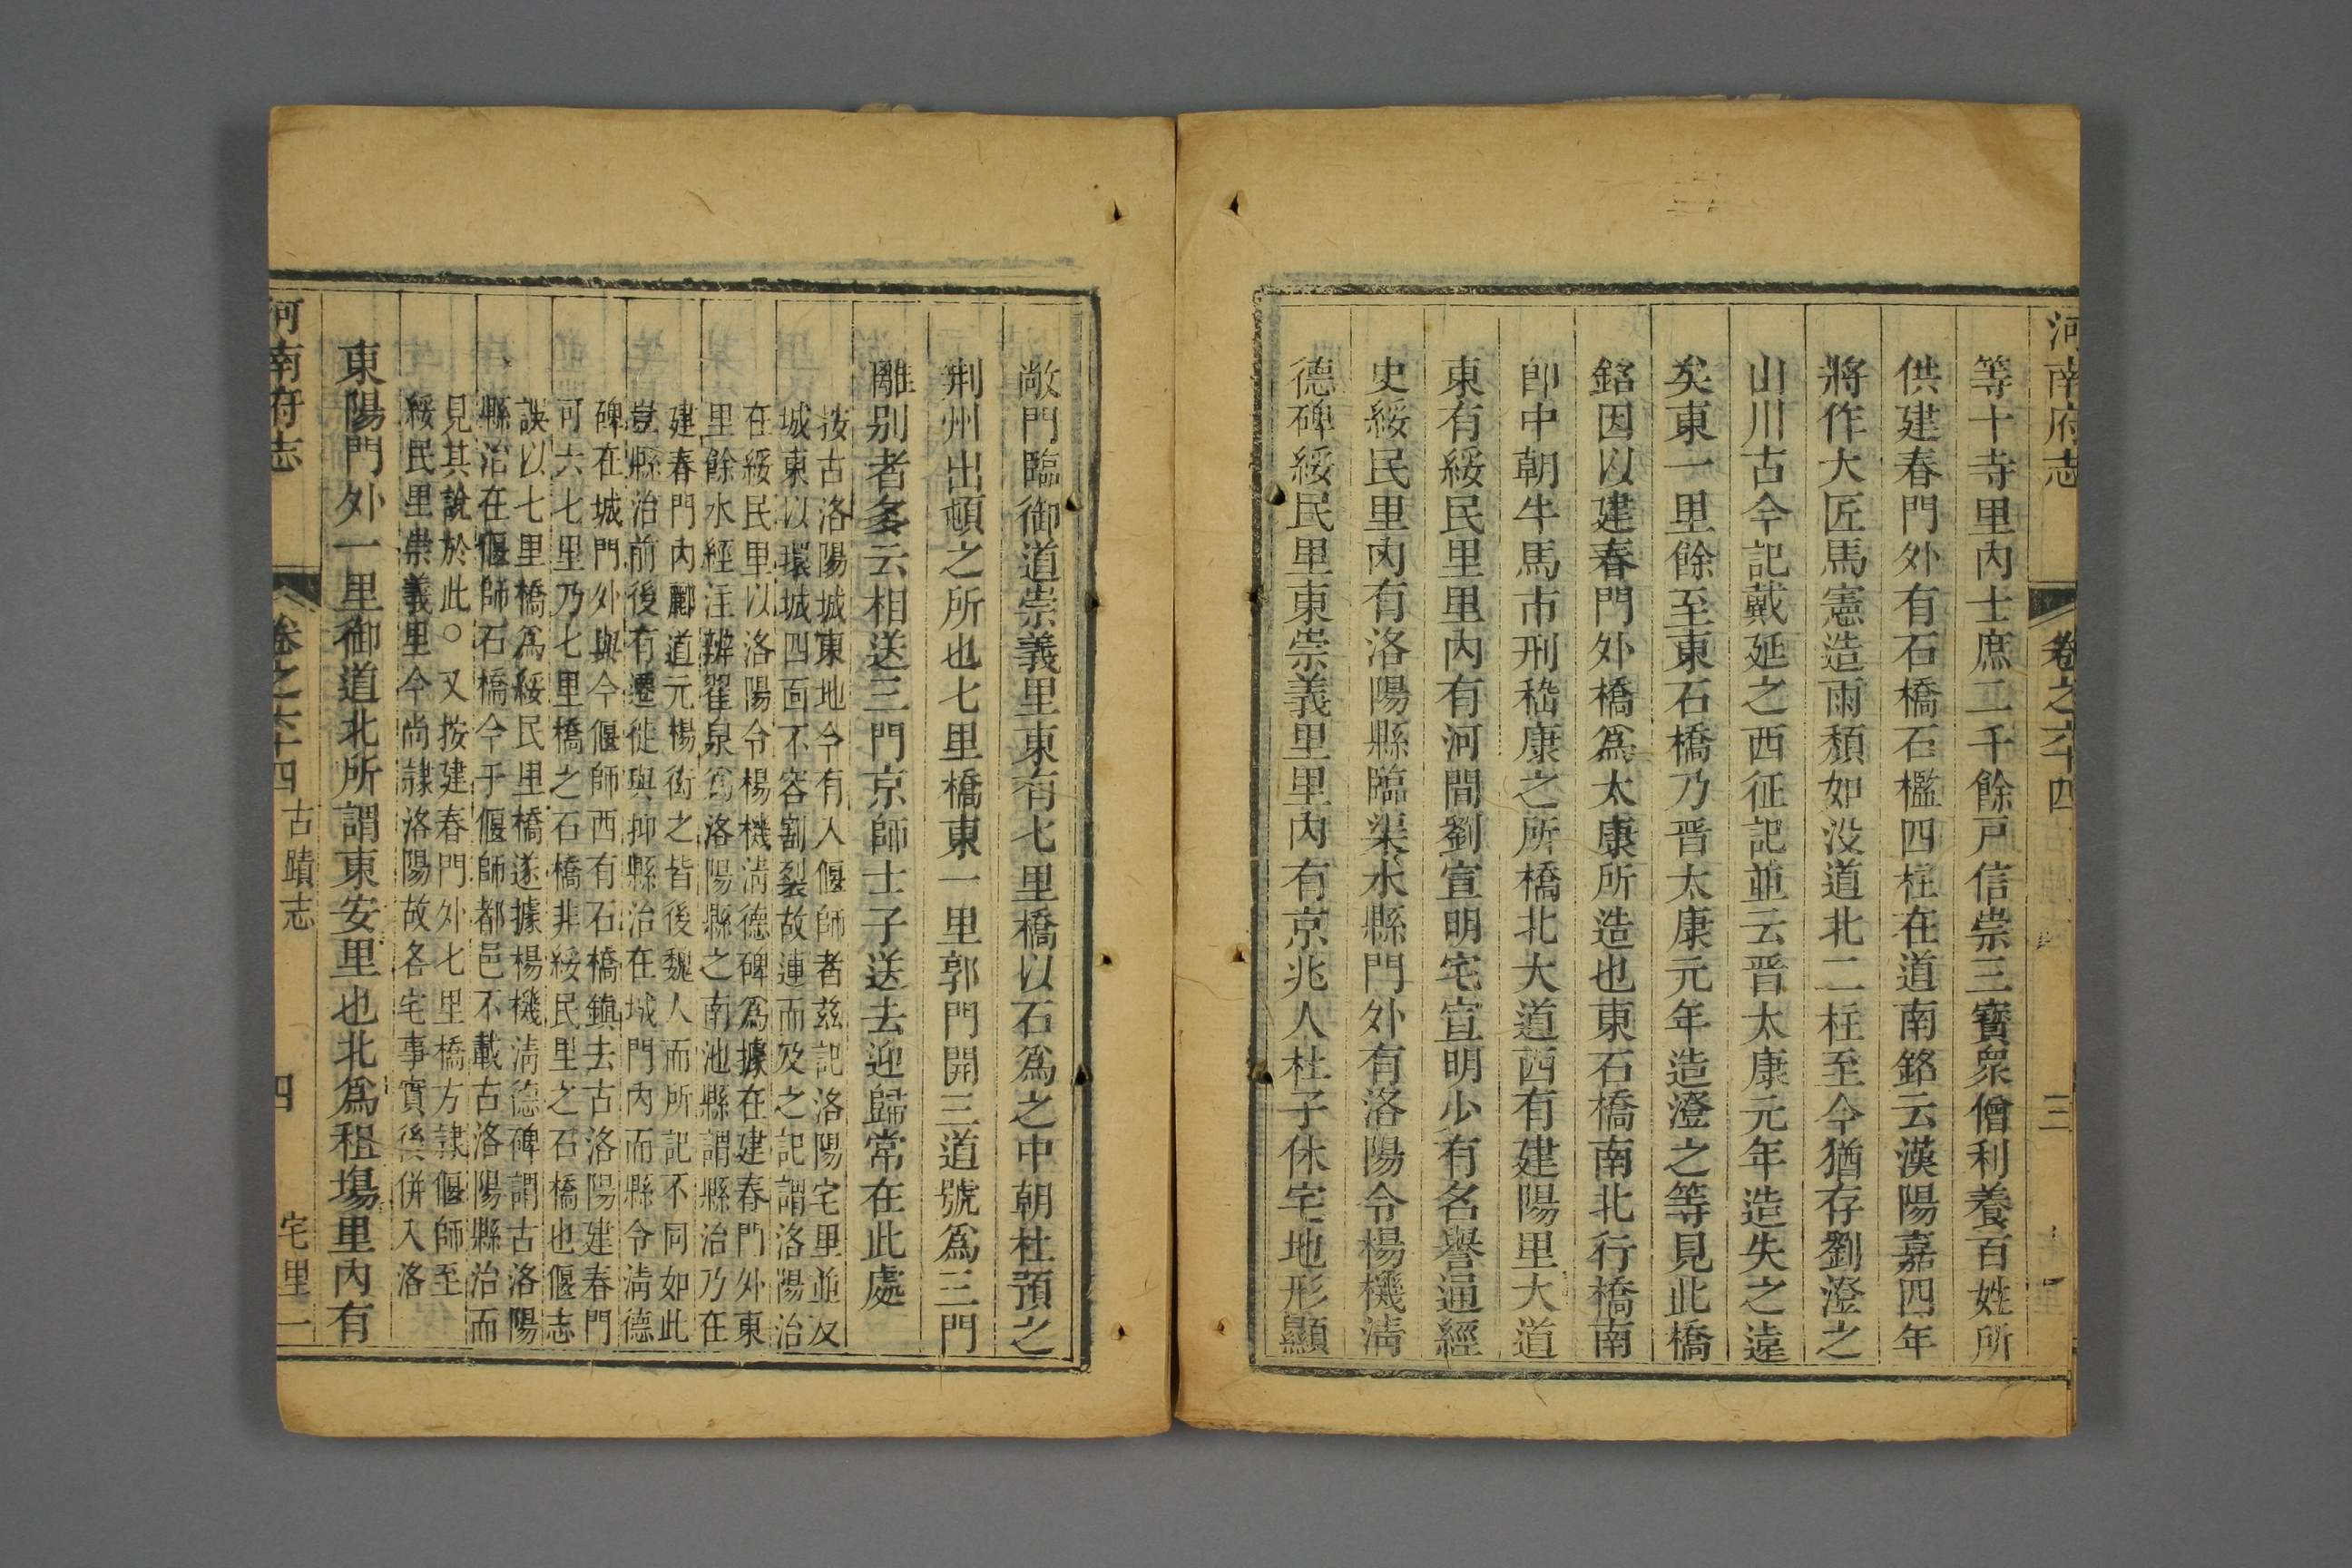 河南府志 卷之六十四 三
等十寺里內士庶二千餘戸信崇三寳衆僧利養百姓所
供建春門外有石橋石檻四柱在道南銘云漢陽嘉四年
將作大匠馬憲造雨頹如没道北二柱至今猶存劉澄之
山川古今記戴延之西征記並云晋太康元年造失之遠
矣東一里餘至東石橋乃晋太康元年造澄之等見此橋
銘因以建春門外橋爲太康所造也東石橋南北行橋南
卽中朝牛馬市刑嵇康之所橋北大道西有建陽里大道
東有綏民里里內有河間劉宣明宅宣明少有名譽通經
史綏民里內有洛陽縣臨渠水縣門外有洛陽令楊機淸
德碑綏民里東崇義里里內有京兆人杜子休宅地形顯
敞門臨御道崇義里東有七里橋以石爲之中朝杜預之
荆州出頓之所也七里橋東一里郭門開三道號爲三門
離别者多云相送三門京師士子送去迎歸常在此處
按古洛陽城東地今有入偃師者兹記洛陽宅里並及
城東以環城四面不容割裂故連而及之記謂洛陽治
在綏民里以洛陽令楊機淸德碑爲據在建春門外東
里餘水經注辨翟泉爲洛陽縣之南池縣謂縣治乃在
建春門內酈道元楊衒之皆後魏人而所記不同如此
豈縣治前後有遷徙與抑縣治在城門內而縣令淸德
碑在城門外與今偃師西有石橋鎮去古洛陽建春門
可六七里乃七里橋之石橋非綏民里之石橋也偃志
誤以七里橋爲綏民里橋遂據楊機淸德碑謂古洛陽
縣治在偃師石橋今于偃師都邑不載古洛陽縣治而
見其說於此○又按建春門外七里橋方隷偃師至
綏民里崇義里今尚隷洛陽故各宅事實俱併入洛
東陽門外一里御道北所謂東安里也北爲租塲里內有
河南府志 卷之六十四 古蹟志 四 宅里一